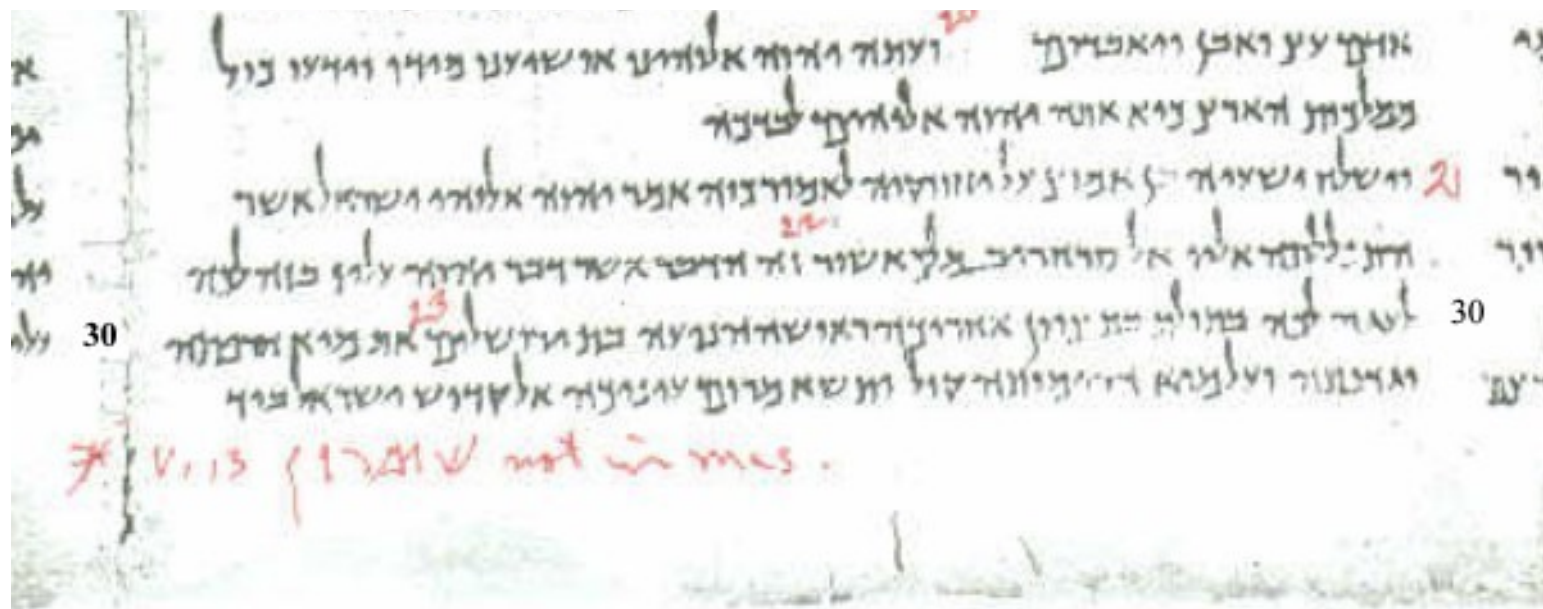 20
אדם עץ ואבן ויאבדום ועתה יהוה אלוהינו אושיענו מידו וידעו כול
ממלכות הארץ כיא אתה יהוה אלוהים לבדכה
21 וישלח ישעיה בן אמוץ על יחזקיה לאמור כוה אמר יהוה אלוהי ישראל אשר
22
התפללתה אליו אל סנחריב מלך אשור זה הדבר אשר דבר יהוה עליו בזה לכה
23
30 לעגה לכה בתולת בת ציון אחריכה ראושה הניעה בת ירושלים את מיא חרפתה 30
וגדפתה ועל מיא הרימותה קול ותשא מרום עיניכה אל קדוש ישראל ביד
* V. 13 שומרון not in mas.